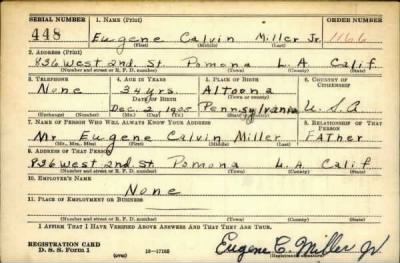 SERIAL NUMBER 1. NAME (Print) ORDER NUMBER
448 Eugene Calvin Miller Jr. 1166
(First) (Middle) (Last)
2. ADDRESS (Print)
836 West 2nd. St. Pomona L.A. Calif
(Number and street or R. F. D. number) (Town) (County) (State)
3. TELEPHONE 4. AGE IN YEARS 5. PLACE OF BIRTH 6. COUNTRY OF CITIZENSHIP
None 34 yrs. Altoona
DATE OF BIRTH
Dec. 2, 1905 Pennsylvania U.S.A
(Exchange) (Number) (Mo.) (Day) (Yr.) (State or country)
7. NAME OF PERSON WHO WILL ALWAYS KNOW YOUR ADDRESS 8. RELATIONSHIP OF THAT PERSON
Mr. Eugene Calvin Miller Father
(Mr., Mrs., Miss) (First) (Middle) (Last)
9. ADDRESS OF THAT PERSON
836 West 2nd St Pomona L.A. Calif
(Number and street or R. F. D. number) (Town) (County) (State)
10. EMPLOYER'S NAME
None
11. PLACE OF EMPLOYMENT OR BUSINESS
(Number and street or R. F. D. number) (Town) (County) (State)
I AFFIRM THAT I HAVE VERIFIED ABOVE ANSWERS AND THAT THEY ARE TRUE.
REGISTRATION CARD
D. S. S. Form 1 (over) 16-17105 Eugene C. Miller Jr.
(Registrant's signature)